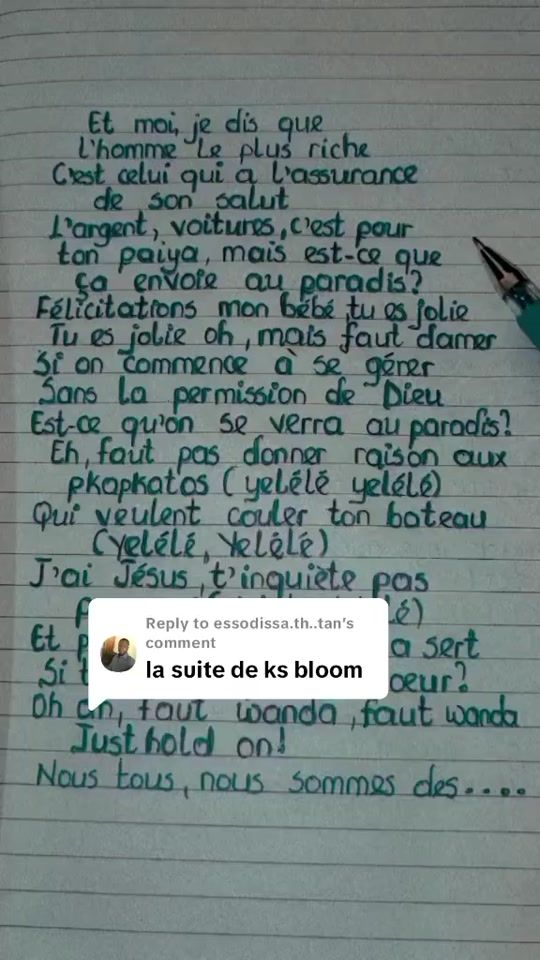 Et moi, je dis que
l'homme le plus riche
C'est celui qui a l'assurance
de son salut
L'argent, voitures, c'est pour
ton paiya, mais est-ce que
ça envoie au paradis?
Félicitations mon bébé, tu es jolie
Tu es jolie oh, mais faut damer
Si on commence à se gérer
Sans la permission de Dieu
Est-ce qu'on se verra au paradis?
Eh, faut pas donner raison aux
pkapkatos (yelélé yelélé)
Qui veulent couler ton bateau
(Yelélé, Yelélé)
J'ai Jésus, t'inquiète pas
Et a sert
Si
Reply to essodissa.th..tan's
comment
la suite de ks bloom
Oh ah, faut wanda, faut wanda
Just hold on!
Nous tous, nous sommes des....